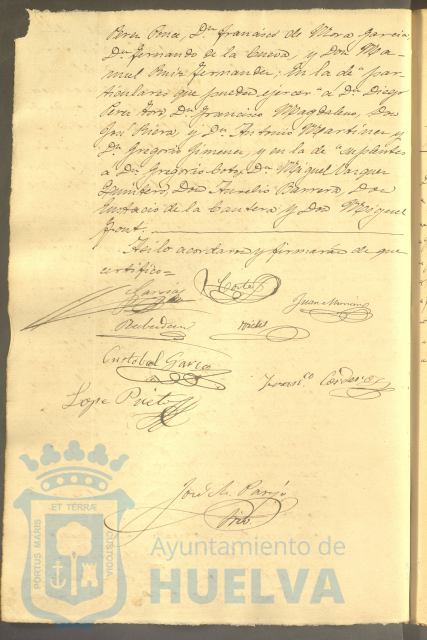 Perez Ponce, Dn. Francisco de Mora Garcia
Dn. Fernando de la Cueva, y Don Ma-
nuel Ruiz Fernandez; En la de par-
ticulares que puedan ejercer a Dn. Diego
Perez Dn. Francisco Magdaleno, Don
José Riera, y Dn. Antonio Martinez y
Dn. Gregorio Jimenez, y en la de suplentes
a Dn. Gregorio Dn. Miguel Vazquez
Quintero, Don Aurelio Barrera, Don
Eustacio de la Cantera y Don Miguel
Font.
Asi lo acordaron y firmarán de que
certifico=
Garcia
Cortes
Rubio
Cristobal Garcia
Franco. Cordero
Lope Prieto
José M. Parejo
Srio
PORTUS MARIS ET TERRÆ CUSTODIA
Ayuntamiento de
HUELVA